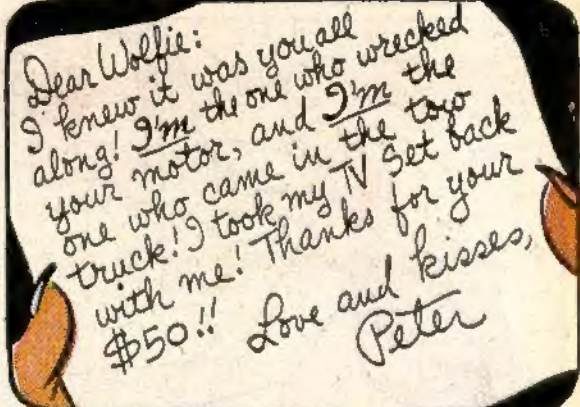 Dear Wolfie:
I knew it was you all
along! I'm the one who wrecked
your motor, and I'm the
one who came in the tow
truck! I took my TV set back
with me! Thanks for your
$50!! Love and kisses,
Peter